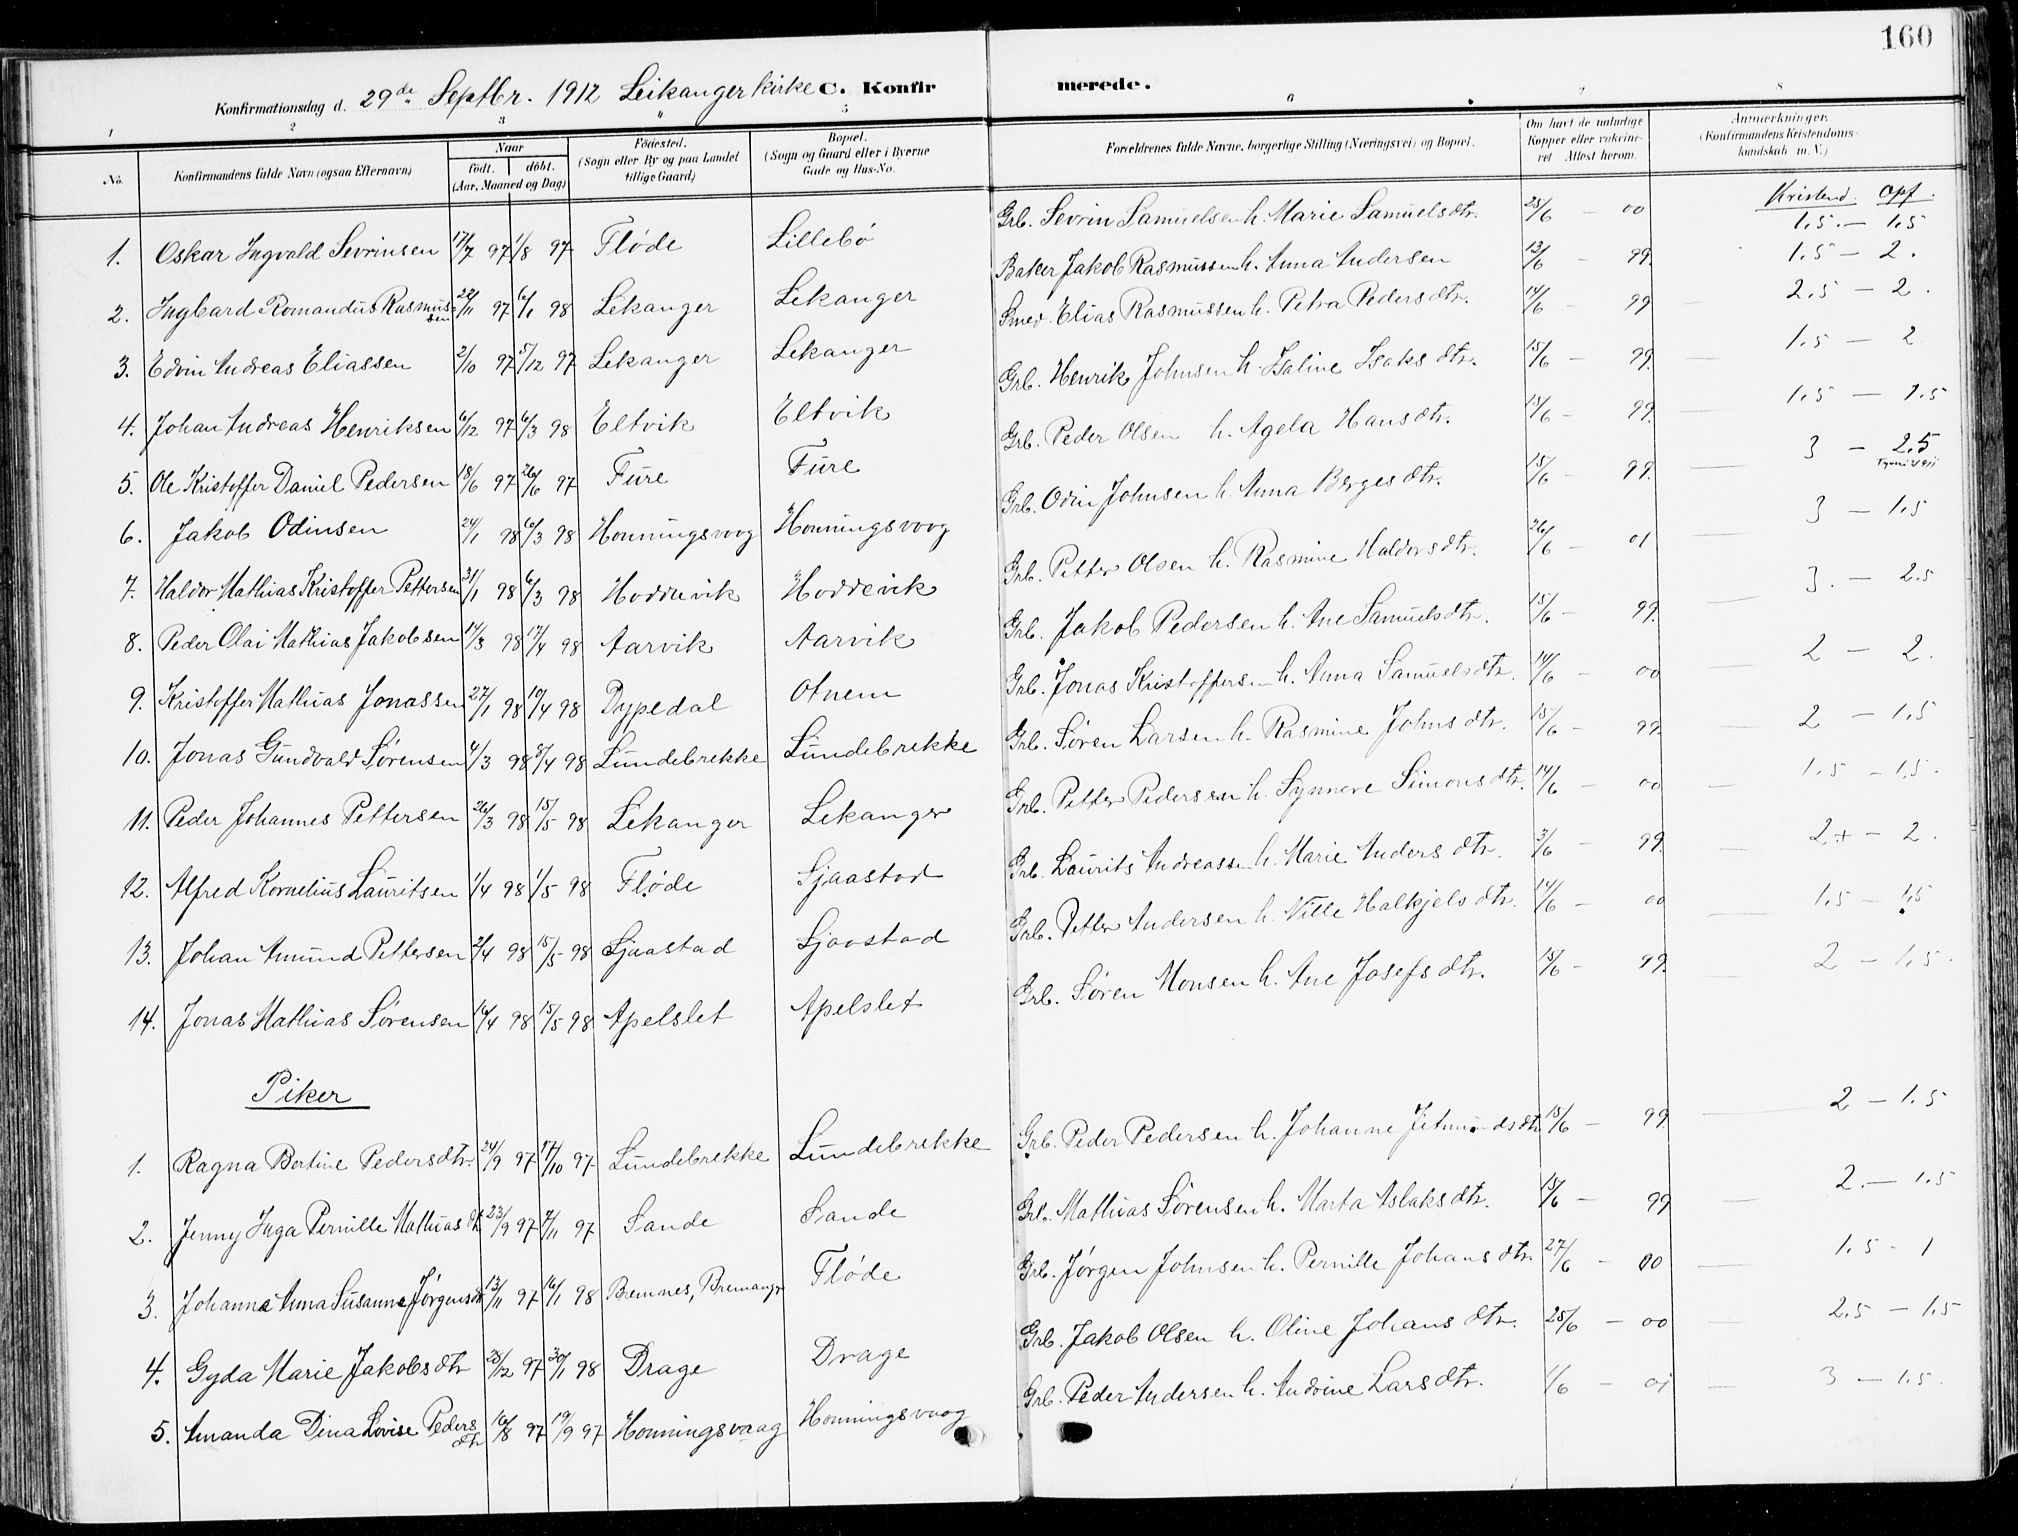 160
Konfirmationsdag d. 29de Septbr. 1912 Leikanger kirke C. Konfirmerede.
1 2 3 4 5 6 7 8
No. Konfirmandens fulde Navn (ogsaa Efternavn) Naar født. døbt. (Aar, Maaned og Dag) Fødested. (Sogn eller By og paa Landet tillige Gaard) Bopæl. (Sogn og Gaard eller i Byerne Gade og Hus-No. Forældrenes fulde Navne, borgerlige Stilling (Næringsvei) og Bopæl. Om havt de naturlige Kopper eller vakcineret. Attest herom. Anmærkninger. (Konfirmandens Kristendomskundskab m. V.)
Kristend. Opf.
1. Oskar Ingvald Sevrinsen 17/7 97 1/8 97 Fløde Lillebø Grb. Sevrin Samuelsen h. Marie Samuelsdtr. 25/6 – 00 1.5 – 1.5
2. Ingbard Romandus Rasmussen 22/11 97 6/1 98 Lekanger Lekanger Baker Jakob Rasmussen h. Anna Andersen 13/6 – 99. 1.5 – 2.
3. Edvin Andreas Eliassen 2/10 97 5/12 97 Lekanger Lekanger Smed Elias Rasmussen h. Petra Pedersdtr. 14/6 – 99 – 2.5 – 2.
4. Johan Andreas Henriksen 6/12 97 6/3 98 Eltvik Eltvik Grb. Henrik Johnsen h. Isaline Isaksdtr. 15/6 – 99. – 1.5 – 2
5. Ole Kristoffer Daniel Pedersen 18/6 97 20/6 97 Fure Fure Grb. Peder Olsen h. Agela Hansdtr. 15/6 – 99. – 1.5 – 1.5
6. Jakob Odinsen 24/1 98 6/3 98 Honningsvoog Honningsvoog Grb. Odin Johnsen h. Anna Bergesdtr. 15/6 – 99. – 3 – 2.5
7. Haldor Mathias Kristoffer Pettersen 31/1 98 6/3 98 Hoddevik Hoddevik Grb. Petter Olsen h. Rasmine Haldorsdtr. 26/6 – 01 – 3 – 1.5
8. Peder Olai Mathias Jakobsen 14/3 98 17/4 98 Aarvik Aarvik Grb. Jakob Pedersen h. Ane Samuelsdtr. 15/6 – 99. – 3. – 2.5
9. Kristoffer Mathias Jonassen 27/1 98 10/4 98 Dypedal Otnem Grb. Jonas Kristoffersen h. Anna Samuelsdtr. 14/6 – 00 – 2 – 2.
10. Jonas Gundvald Sørensen 4/3 98 8/4 98 Lundebrekke Lundebrekke Grb. Søren Larsen h. Rasmine Johnsdtr. 15/6 – 99. – 2 – 1.5
11. Peder Johannes Pettersen 26/3 98 15/5 98 Lekanger Lekanger Grb. Petter Pedersen h. Synneve Simonsdtr. 14/6 – 00 – 1.5 – 1.5.
12. Alfred Kornelius Lauritsen 1/4 98 1/5 98 Fløde Sjaastad Grb. Laurits Andreassen h. Marie Andersdtr. 3/6 – 99. – 2+ – 2.
13. Johan Amund Pettersen 2/4 98 15/5 98 Sjaastad Sjaastad Grb. Petter Andersen h. Nille Halkjelsdtr. 14/6 – 00 – 1.5 – 1.5
14. Jonas Mathias Sørensen 16/4 98 15/5 98 Apelslet Apelslet Grb. Søren Monsen h. Ane Josefsdtr. 15/6 – 99. – 2 – 1.5.
Piker
1. Ragna Bertine Pedersdtr. 24/9 97 17/10 97 Lundebrekke Lundebrekke Grb. Peder Pedersen h. Johanne Jetmundsdtr. 15/6 – 99 – 2 – 1.5
2. Jenny Inga Pernille Mathiasdt 23/9 97 7/11 97 Sande Sande Grb. Mathias Sørensen h. Marta Aslaksdtr. 15/6 – 99 – 2. – 1.5
3. Johanne Anna Susanne Jørgensdtr 13/11 97 16/1 98 Bremnes, Bremanger Fløde Grb. Jørgen Johnsen h. Pernille Johansdtr. 27/6 – 00 – 1.5 – 1
4. Gyda Marie Jakobsdtr 28/12 97 30/1 98 Drage Drage Grb. Jakob Olsen h. Oline Johansdtr. 25/6 – 00 – 2.5 – 1.5
5. Amanda Dina Lovise Pedersdtr 16/8 97 19/9 97 Honningsvaag Honningsvaag Grb. Peder Andersen h. Andrine Larsdtr. 1/6 – 01 – 3 – 1.5.